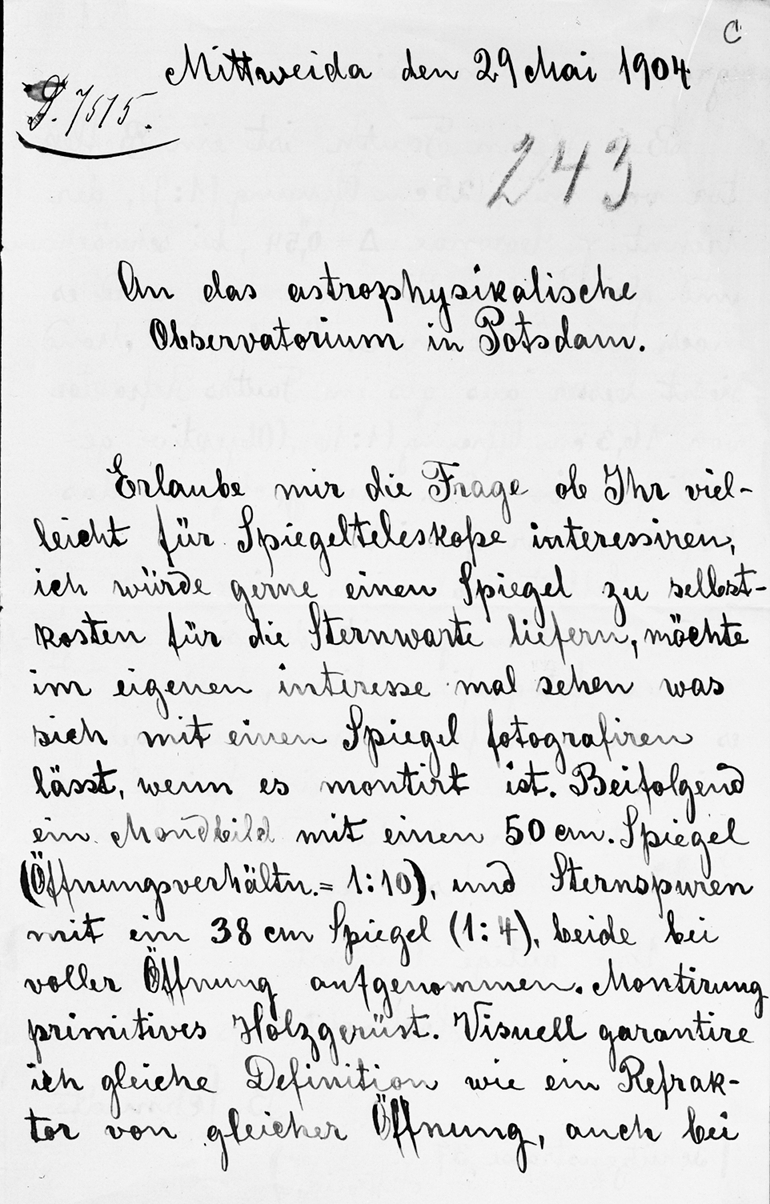 C
Mittweida den 29 Mai 1904
J. 7515.
243
An das astrophysikalische
Observatorium in Potsdam.
Erlaube mir die Frage ob Ihr viel-
leicht für Spiegelteleskope interessiren,
ich würde gerne einen Spiegel zu selbst-
kosten für die Sternwarte liefern, möchte
im eigenen interesse mal sehen was
sich mit einen Spiegel fotografiren
lässt, wenn es montirt ist. Beifolgend
ein Mondbild mit einen 50 cm. Spiegel
(Öffnungsverhältn. = 1:10), und Sternspuren
mit ein 38 cm Spiegel (1:4), beide bei
voller Öffnung aufgenommen. Montirung
primitives Holzgerüst. Visuell garantire
ich gleiche Definition wie ein Refrak-
tor von gleicher Öffnung, auch bei